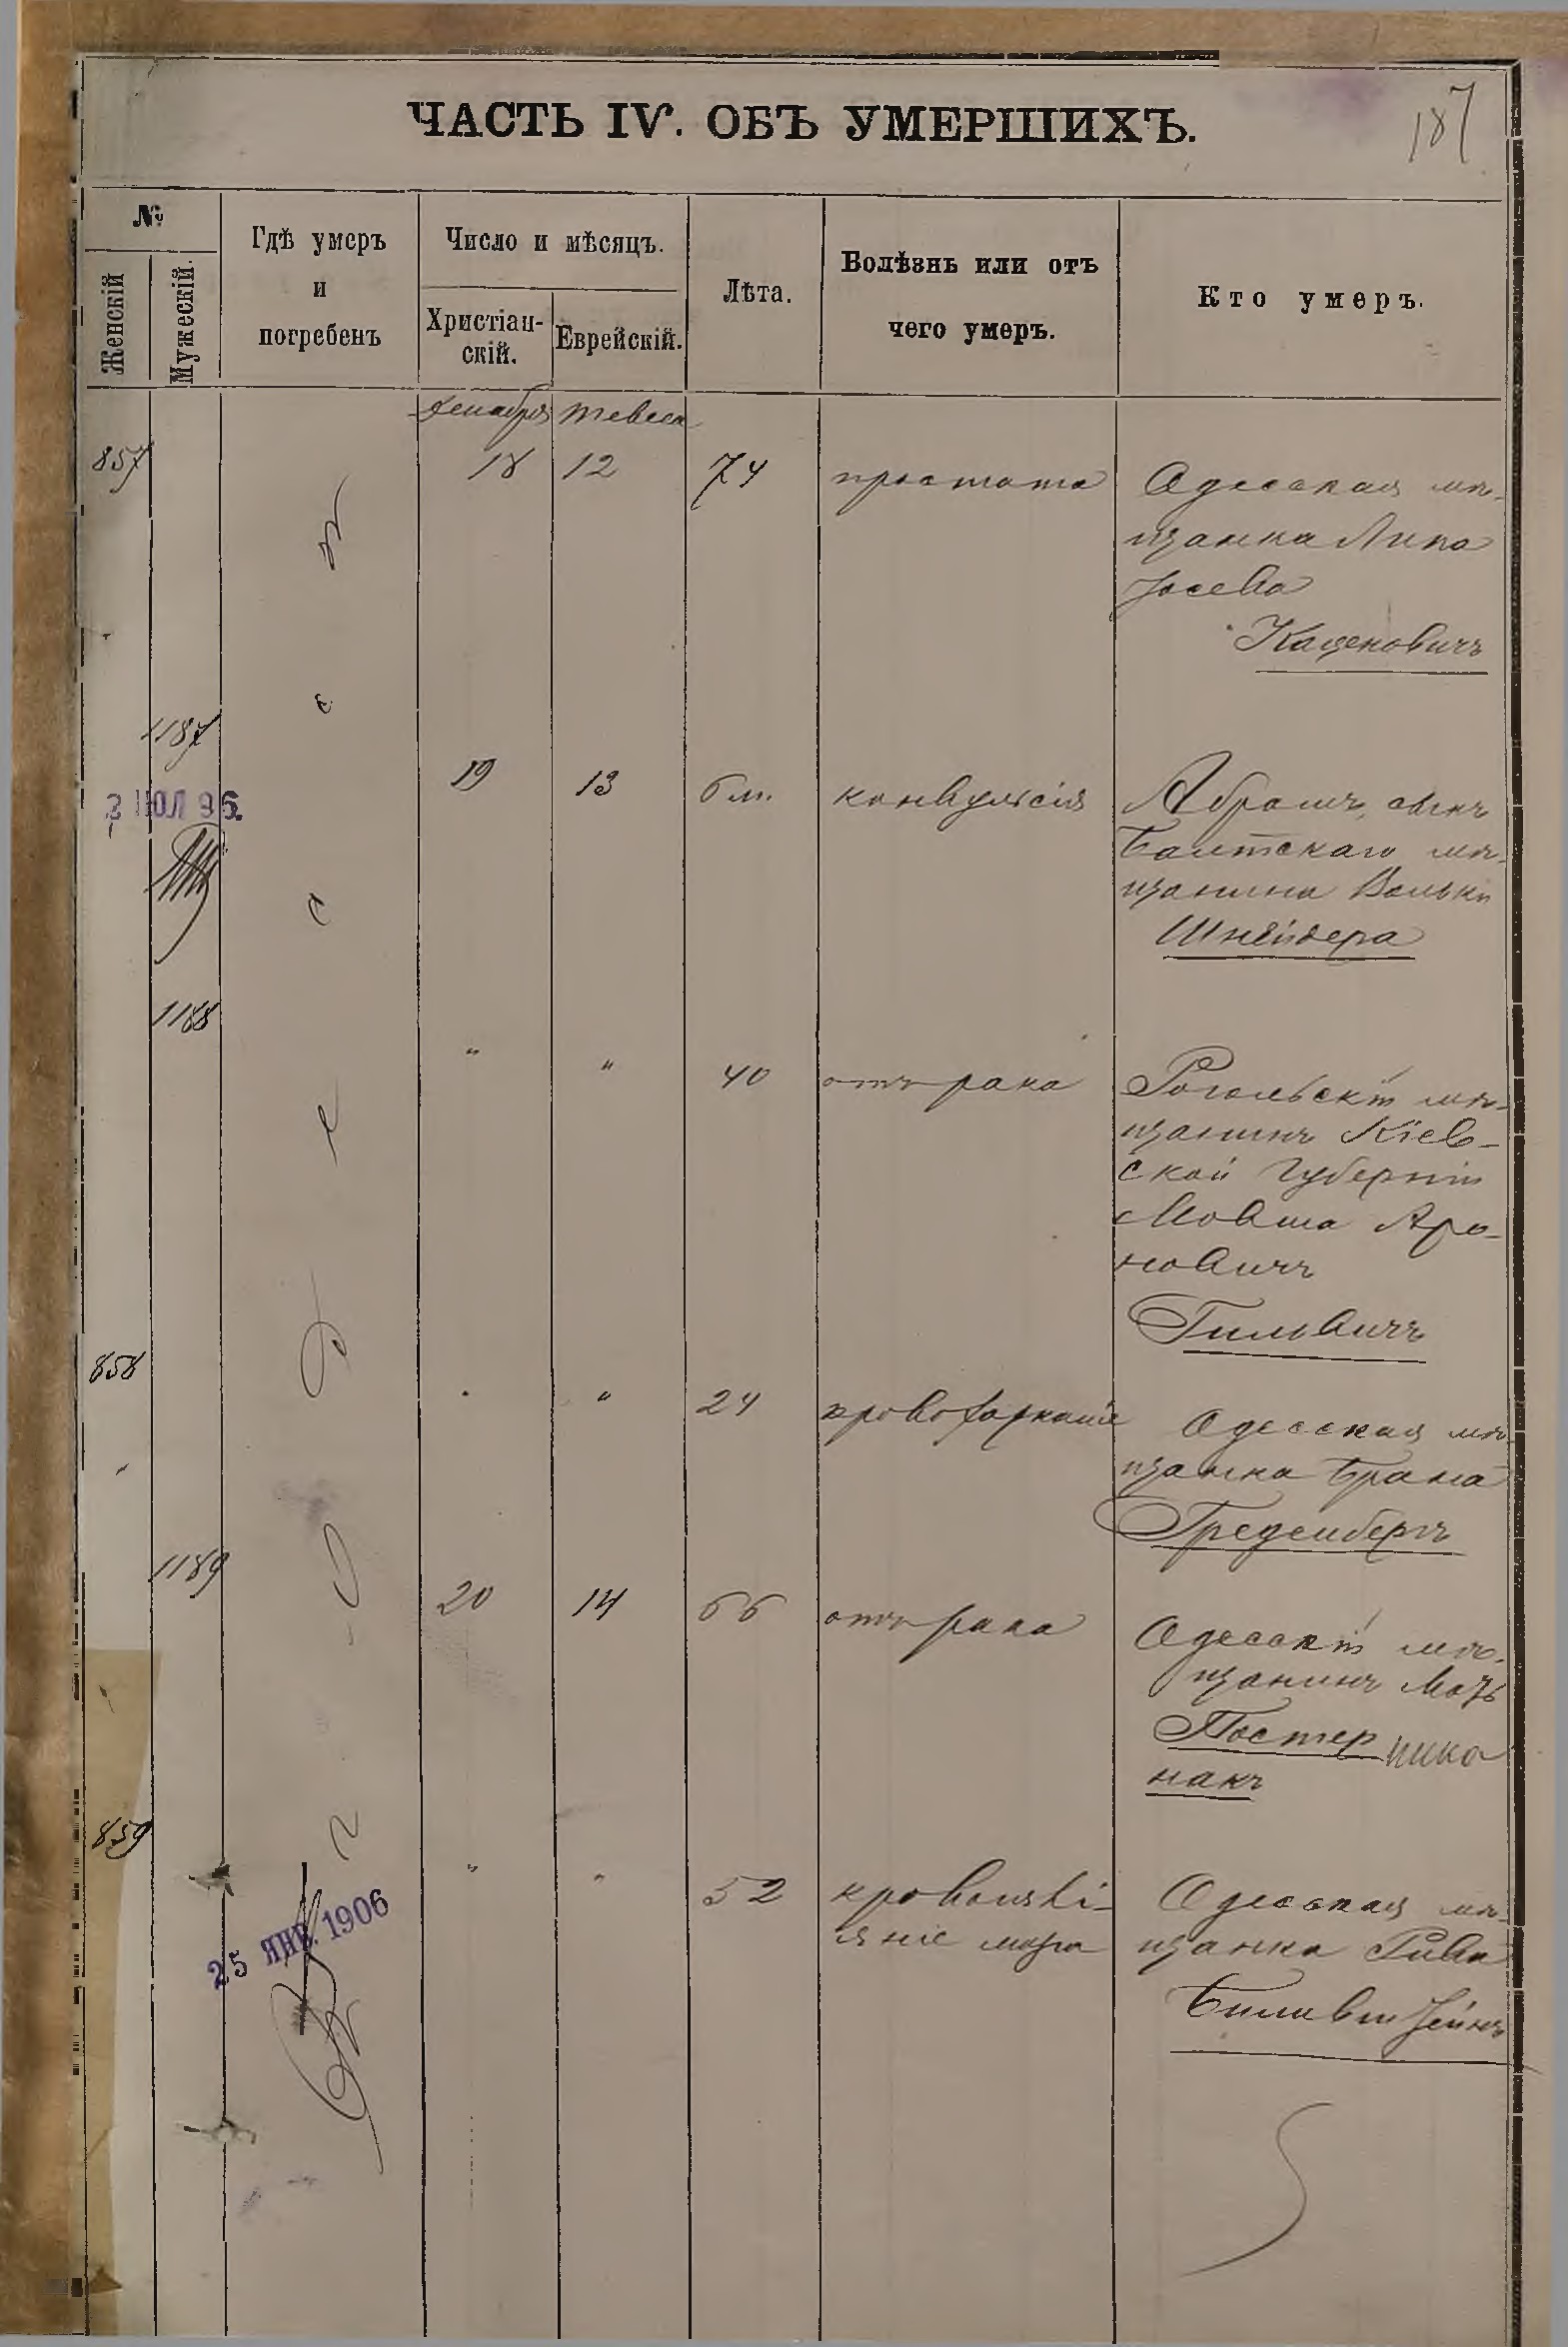 ЧАСТЬ IV. ОБЪ УМЕРШИХЪ.
187
№
Женскій
Мужескій.
Гдѣ умеръ
и
погребенъ
Число и мѣсяцъ.
Христіан-
скій.
Еврейскій.
Лѣта.
Болѣзнь или отъ
чего умеръ.
Кто умеръ.
декабря тевеса
857 18 12 74 простата Одесская мѣ-
щанка Липа
Іосева
Каценовичъ
1187
19 13 6 м. конвульсія Абрамъ, сынъ
Балтскаго мѣ-
щанина Волька
Шнейдера
1188
" " 40 отъ рака мѣ-
щанинъ Кіев-
ской Губерніи
Мовша Аро-
новичъ
Гильвичъ
858
" " 24 кровохарканіе Одесская мѣ-
щанка
1189
20 14 66 отъ рака Одесскій мѣ-
щанинъ
Постер ника
накъ
859
" " 52 кровоизлі-
яніе мозга
Одесская мѣ-
щанка Рива
Одесса
25 ЯНВ. 1906